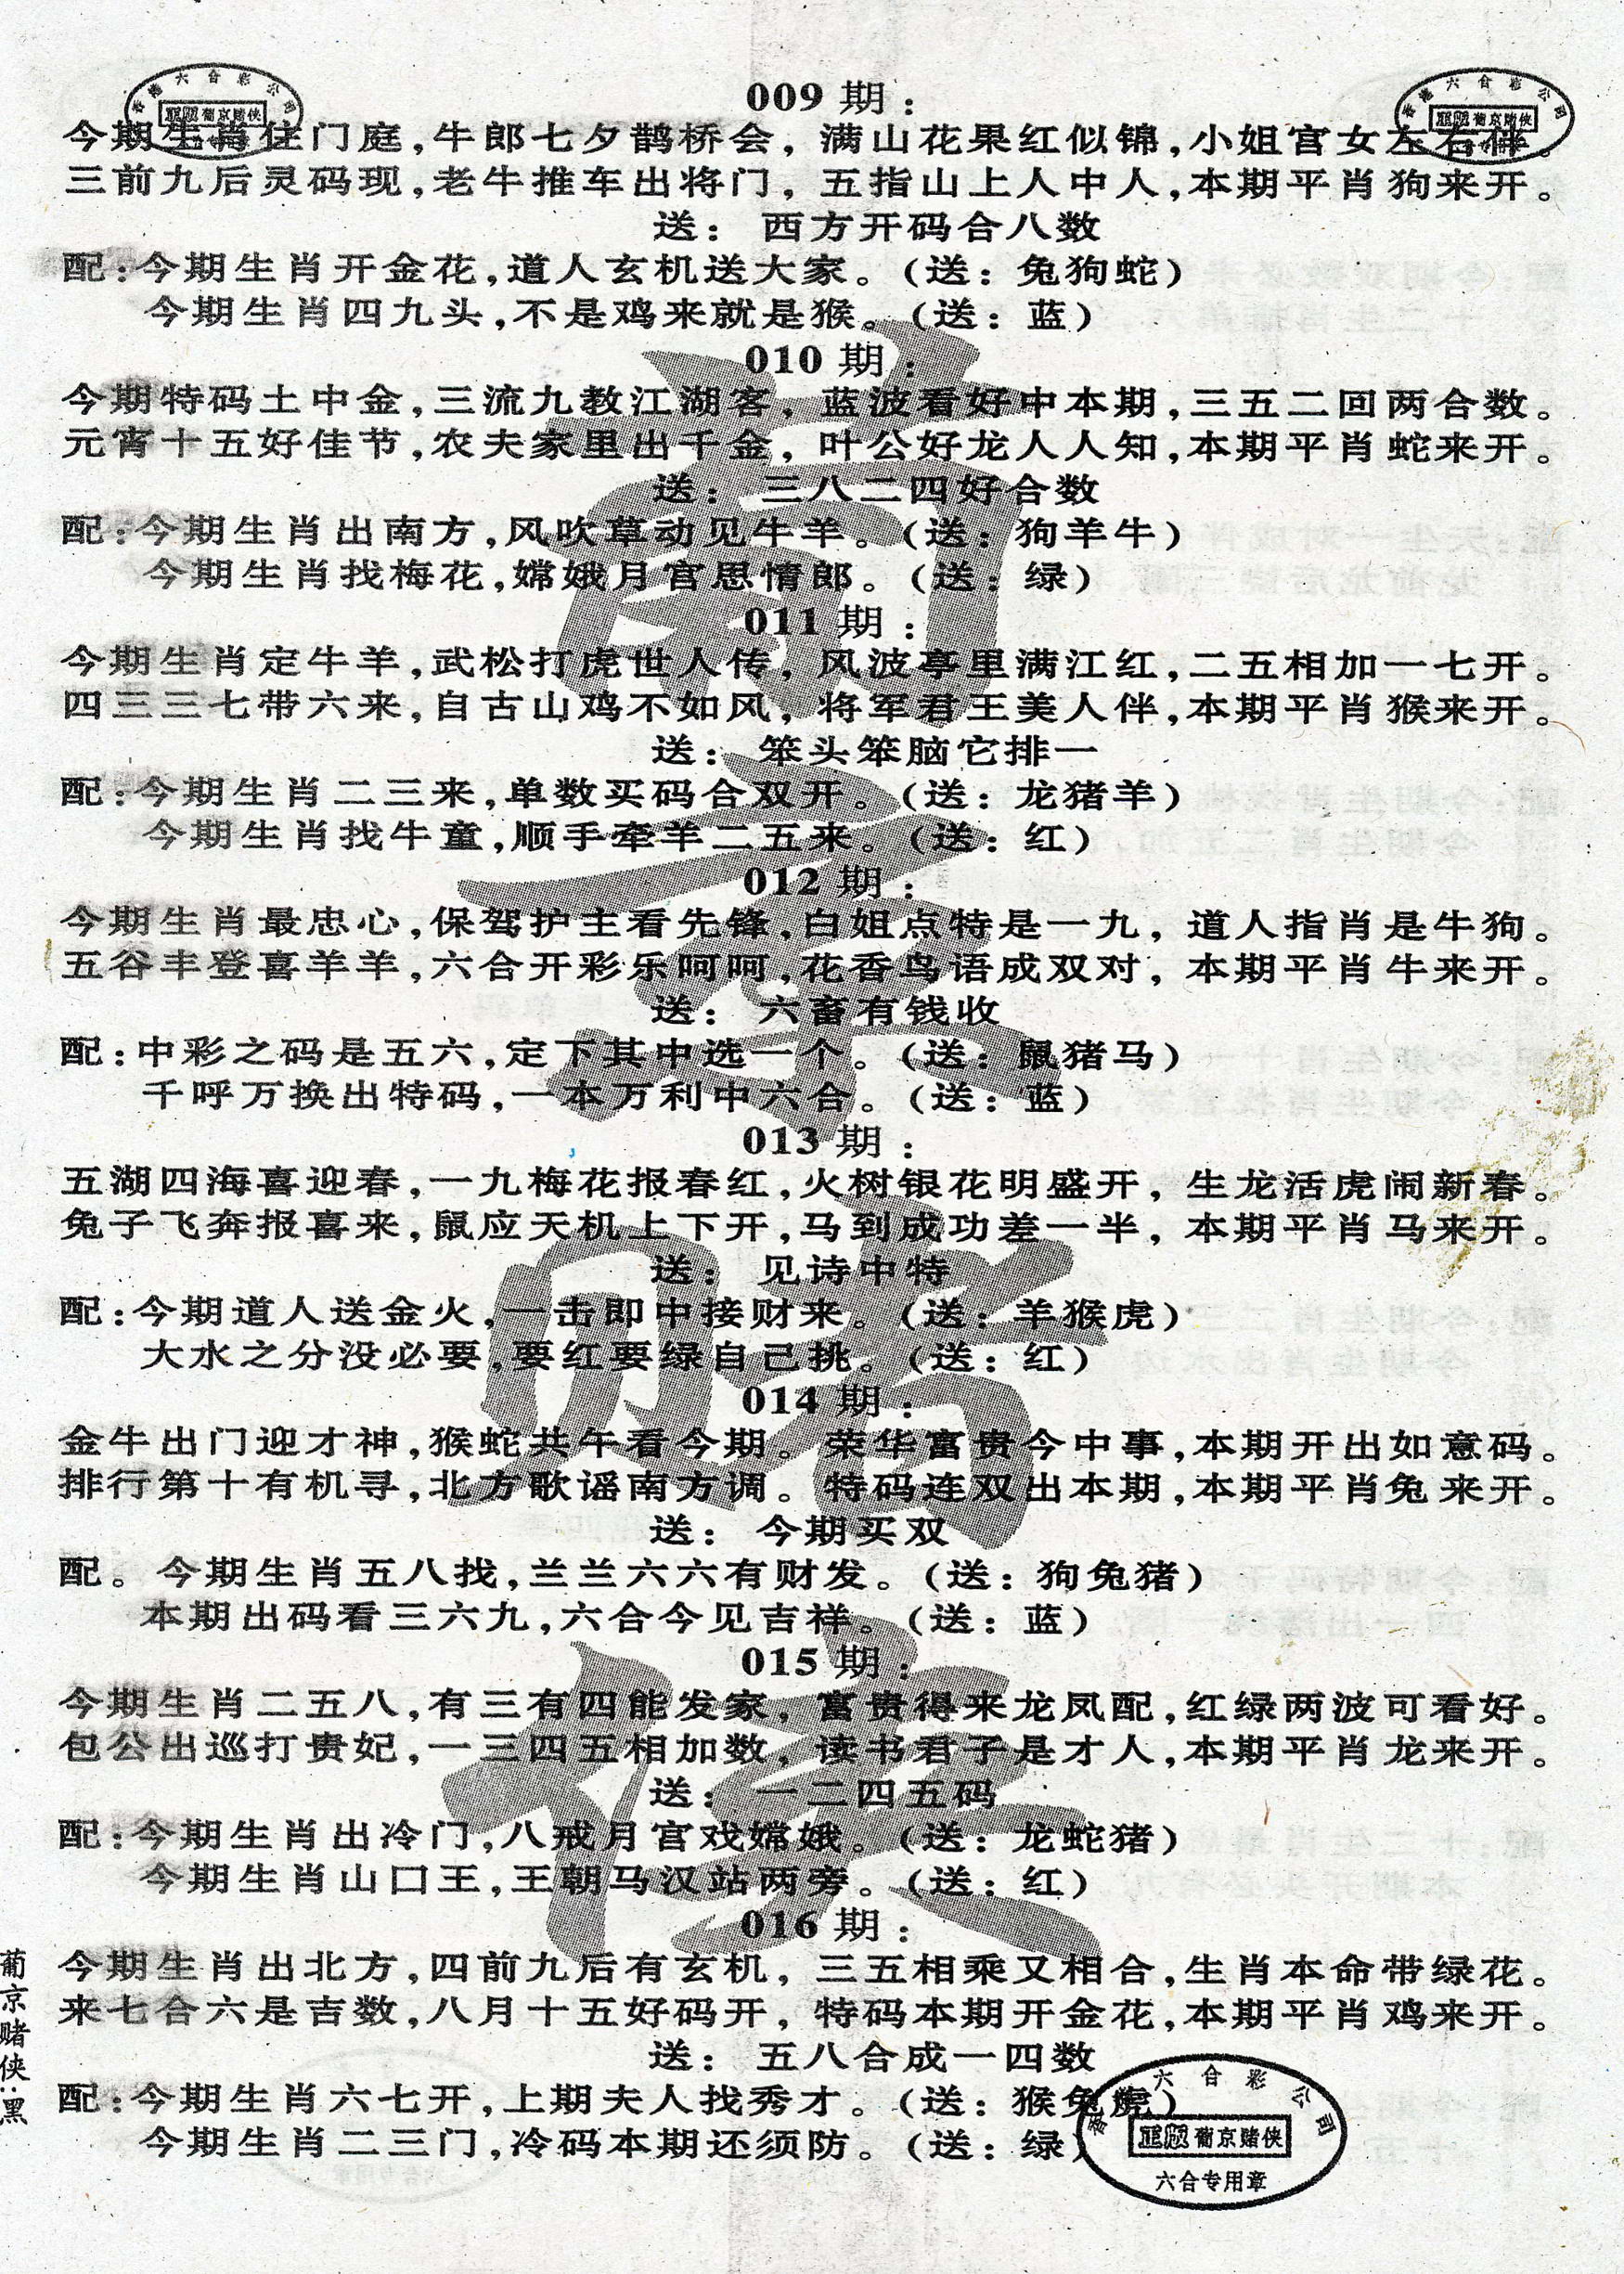 香港六合彩公司
正版 葡京赌侠
香港六合彩公司
正版 葡京赌侠
009 期：
今期生肖住门庭,牛郎七夕鹊桥会，满山花果红似锦,小姐宫女左右伴。
三前九后灵码现,老牛推车出将门，五指山上人中人,本期平肖狗来开。
送：西方开码合八数
配:今期生肖开金花,道人玄机送大家。(送：兔狗蛇)
今期生肖四九头,不是鸡来就是猴。(送：蓝)
010 期：
今期特码土中金,三流九教江湖客，蓝波看好中本期,三五二回两合数。
元宵十五好佳节,农夫家里出千金，叶公好龙人人知,本期平肖蛇来开。
送：三八二四好合数
配:今期生肖出南方,风吹草动见牛羊。(送：狗羊牛)
今期生肖找梅花,嫦娥月宫思情郎。(送：绿)
011 期：
今期生肖定牛羊,武松打虎世人传，风波亭里满江红,二五相加一七开。
四三三七带六来,自古山鸡不如风，将军君王美人伴,本期平肖猴来开。
送：笨头笨脑它排一
配:今期生肖二三来,单数买码合双开。(送：龙猪羊)
今期生肖找牛童,顺手牵羊二五来。(送：红)
012 期：
今期生肖最忠心,保驾护主看先锋,白姐点特是一九，道人指肖是牛狗。
五谷丰登喜羊羊,六合开彩乐呵呵,花香鸟语成双对，本期平肖牛来开。
送：六畜有钱收
配:中彩之码是五六,定下其中选一个。(送：鼠猪马)
千呼万换出特码,一本万利中六合。(送：蓝)
013 期：
五湖四海喜迎春,一九梅花报春红,火树银花明盛开，生龙活虎闹新春。
兔子飞奔报喜来,鼠应天机上下开,马到成功差一半，本期平肖马来开。
送：见诗中特
配:今期道人送金火,一击即中接财来。(送：羊猴虎)
大水之分没必要,要红要绿自己挑。(送：红)
014 期：
金牛出门迎才神,猴蛇共午看今期。荣华富贵今中事,本期开出如意码。
排行第十有机寻,北方歌谣南方调。特码连双出本期,本期平肖兔来开。
送：今期买双
配。今期生肖五八找,兰兰六六有财发。(送：狗兔猪)
本期出码看三六九,六合今见吉祥。(送：蓝)
015 期：
今期生肖二五八,有三有四能发家，富贵得来龙凤配,红绿两波可看好。
包公出巡打贵妃,一三四五相加数，读书君子是才人,本期平肖龙来开。
送：一二四五码
配:今期生肖出冷门,八戒月宫戏嫦娥。(送：龙蛇猪)
今期生肖山口王,王朝马汉站两旁。(送：红)
016 期：
今期生肖出北方,四前九后有玄机，三五相乘又相合,生肖本命带绿花。
来七合六是吉数,八月十五好码开，特码本期开金花,本期平肖鸡来开。
送：五八合成一四数
配:今期生肖六七开,上期夫人找秀才。(送：猴兔虎)
今期生肖二三门,冷码本期还须防。(送：绿)
葡京赌侠
葡京赌侠:黑
香港六合彩公司
正版 葡京赌侠
六合专用章